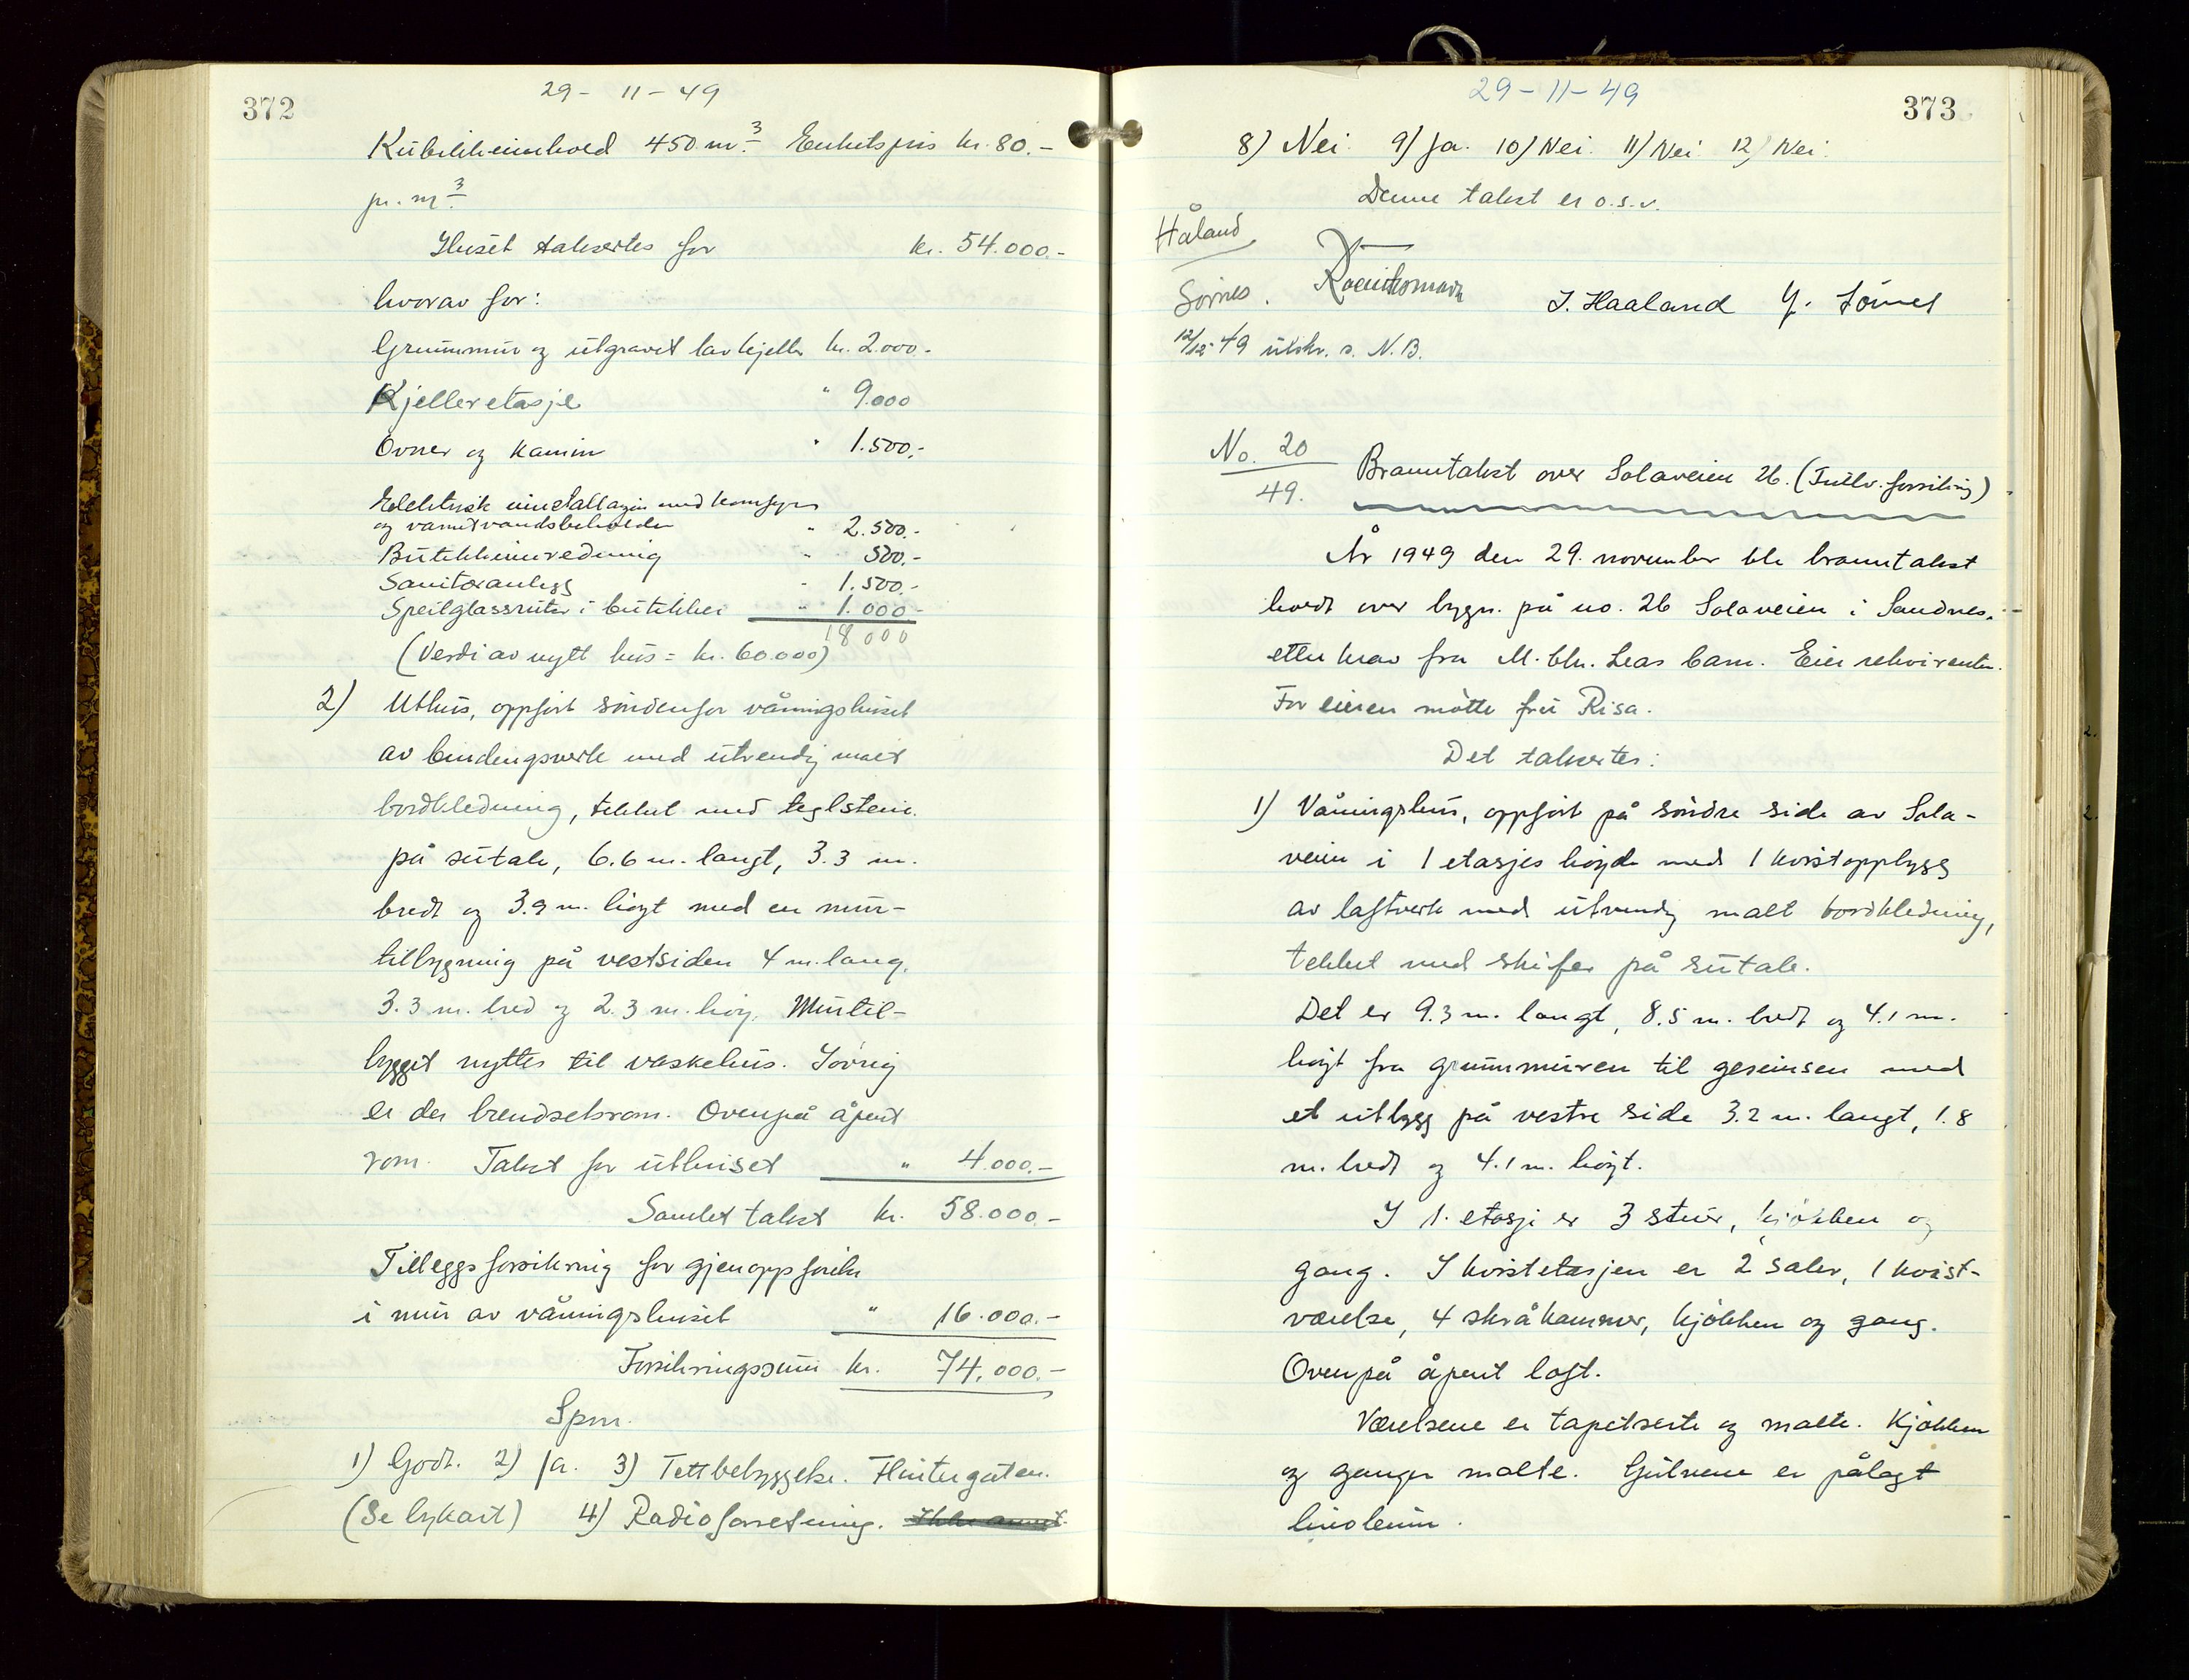 372
29-11-49
Kubikkinnhold 450 m³. Enhetspris kr. 80.-
pr. m³.
Huset takseres for kr. 54.000.-
hvorav for:
Grunnmur og utgravet lav kjeller kr. 2.000.-
Kjelleretasje " 9.000
Ovner og kamin " 1.500.-
Elektrisk installasjon med komfyr
og varmtvandsbeholder " 2.500.-
Butikkinnredning " 500.-
Sanitæranlegg " 1.500.-
Speilglassruter i butikker " 1.000.-
18000
(Verdi av nytt hus = kr. 60.000)
2) Uthus, oppført söndenfor våningshuset
av bindingsverk med utvendig malt
bordkledning, tekket med teglstein
på sutak, 6.6 m. langt, 3.3 m.
bredt og 3.9 m. høgt med en mur-
tilbygning på vestsiden 4 m. lang,
3.3 m. bred og 2.3 m. høg. Murtil-
bygget nyttes til vaskehus. Iøvrig
er der brendselsrom. Ovenpå åpent
rom. Takst for uthuset " 4.000.-
Samlet takst kr. 58.000.-
Tilleggsforsikring for gjenoppførelse
i mur av våningshuset " 16.000.-
Forsikringssum kr. 74.000.-
Spm.
1) Godt. 2) Ja. 3) Tettbebyggelse. Flintegaten.
(Se bykart) 4) Radioforretning. Ikke annet.
29-11-49
373
8) Nei. 9) Ja. 10) Nei. 11) Nei. 12) Nei.
Denne takst er o.s.v.
Håland
Sörnes.
I. Haaland
Sörnes
12/12-49 utskr. s. N.B.
No. 20
49.
Branntakst over Solaveien 26. (Fullv. forsikring)
År 1949 den 29. november ble branntakst
holdt over bygn. på no. 26 Solaveien i Sandnes.
etter krav fra M. Leas barn. Eier rekvirenten.
For eieren møtte fru Risa.
Det takseres:
1) Våningshus, oppført på söndre side av Sola-
veien i 1 etasjes høyde med 1 kvistoppbygg
av laftverk med utvendig malt bordkledning,
tekket med skifer på sutak.
Det er 9.3 m. langt, 8.5 m. bredt og 4.1 m.
høgt fra grunnmuren til gesimsen med
et utbygg på vestre side 3.2 m. langt, 1.8
m. bredt og 4.1 m. høgt.
I 1. etasje er 3 stuer, kjökken og
gang. I kvistetasjen er 2 saler, 1 kvist-
værelse, 4 skråkammer, kjökken og gang.
Ovenpå åpent loft.
Værelsene er tapetserte og malte. Kjökken
og ganger malte. Gulvene er pålagt
linoleum.